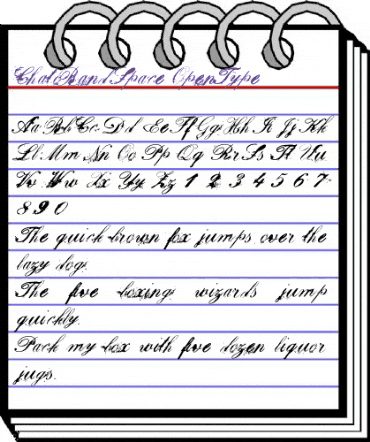 ChalkBandSpace OpenType
Aa Bb Cc Dd Ee Ff Gg Hh Ii Jj Kk
Ll Mm Nn Oo Pp Qq Rr Ss Tt Uu
Vv Ww Xx Yy Zz 1 2 3 4 5 6 7
8 9 0
The quick brown fox jumps over the
lazy dog.
The five boxing wizards jump
quickly.
Pack my box with five dozen liquor
jugs.